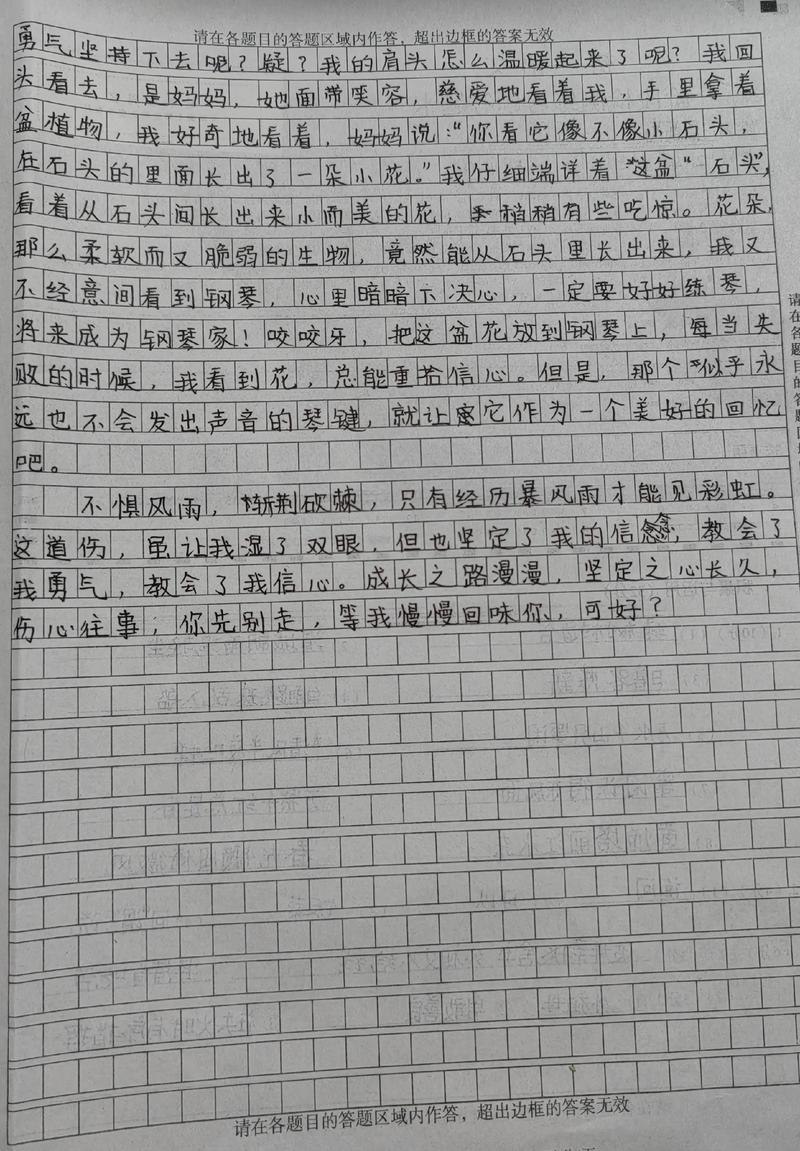 请在各题目的答题区域内作答，超出边框的答案无效
勇气坚持下去呢？疑？我的肩头怎么温暖起来了呢？我回
头看去，是妈妈，她面带笑容，慈爱地看着我，手里拿着
盆植物，我好奇地看着，妈妈说：“你看它像不像小石头，
在石头的里面长出了一朵小花。”我仔细端详着“这盆“石头”，
看着从石头间长出来小而美的花，稍稍有些吃惊。花朵，
那么柔软而又脆弱的生物，竟然能从石头里长出来，我又
不经意间看到钢琴，心里暗暗下决心，一定要好好练琴，
将来成为钢琴家！咬咬牙，把这盆花放到钢琴上，每当失
败的时候，我看到花，总能重拾信心。但是，那个似乎永
远也不会发出声音的琴键，就让它作为一个美好的回忆
吧。
不惧风雨，斩荆砍棘，只有经历暴风雨才能见彩虹。
这道伤，虽让我湿了双眼，但也坚定了我的信念，教会了
我勇气，教会了我信心。成长之路漫漫，坚定之心长久，
伤心往事，你先别走，等我慢慢回味你，可好？
请在各题目的答题区域内作答，超出边框的答案无效